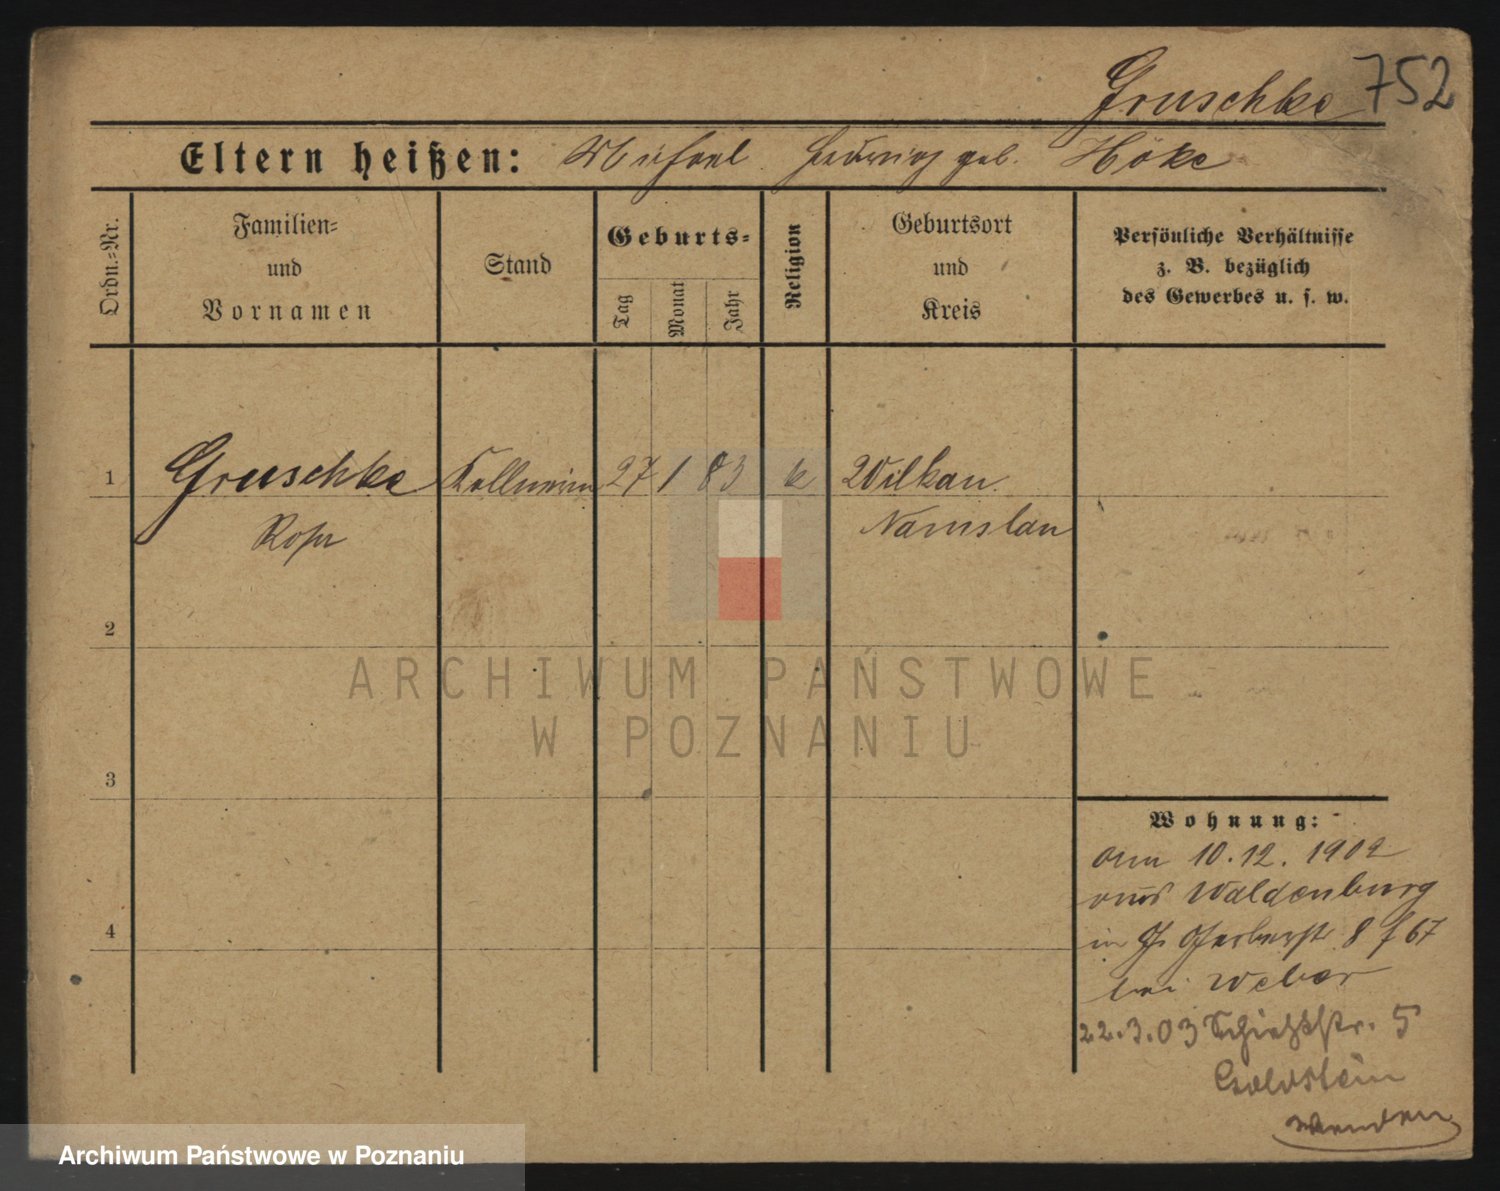 Gruschke 752
Eltern heißen: Michael Hedwig geb. Höke
Ordn.-Nr.
Familien-
und
Vornamen
Stand
Geburts-
Tag
Monat
Jahr
Religion
Geburtsort
und
Kreis
Persönliche Verhältnisse
z. B. bezüglich
des Gewerbes u. s. w.
1 Gruschke Kellnerin 27 1 83 k Wilkau
Rosa Namslau
2
3
4
ARCHIWUM PAŃSTWOWE
W POZNANIU
Wohnung:
am 10.12.1902
aus Waldenburg
in Gerberstr 8
bei Weber
22.3.03 5
Goldstein
wenden
Archiwum Państwowe w Poznaniu